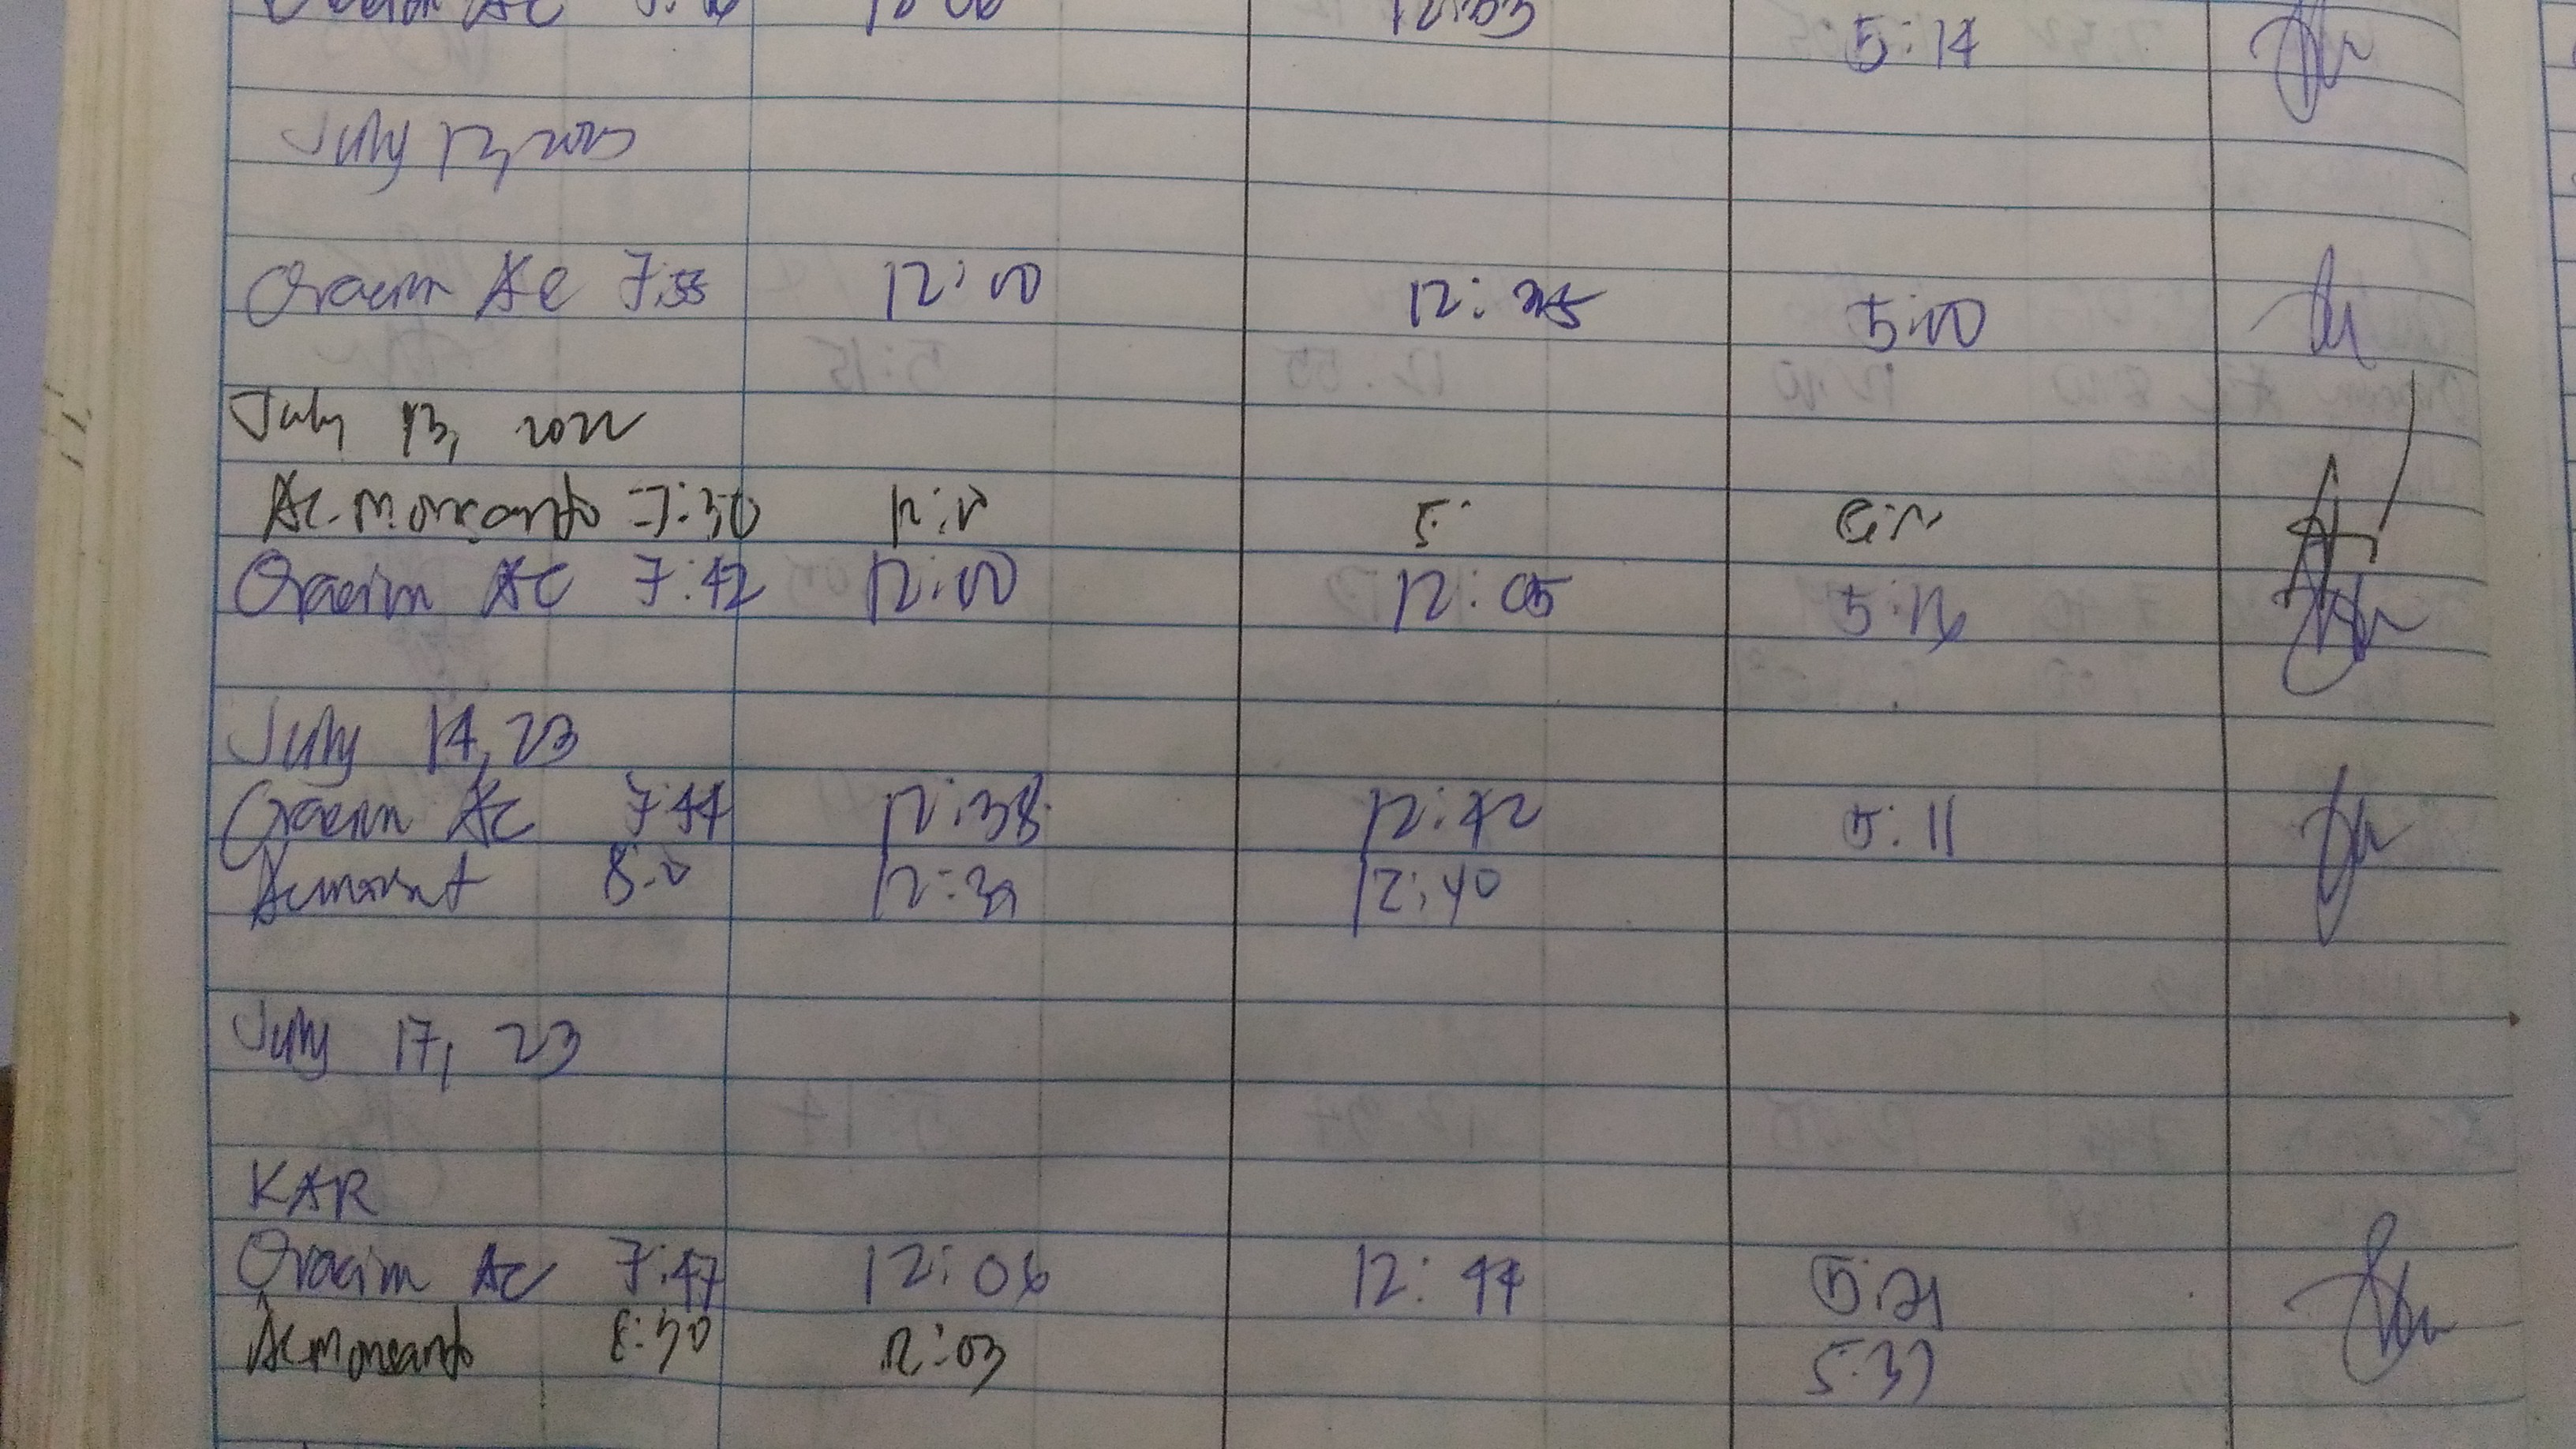 5:14
July 12, 2023
Oracion AC 7:55 12:00 12: 5:00
July 13, 2022
Ac. Monsanto 7:30 12:0 5:
Oracion AC 7:42 12:00 12:05 5:16
July 14, 23
Oracion AC 7:44 12:38 12:42 5:11
8:0 12:39 12:40
July 17, 23
KAR
Oracion AC 7:47 12:06 12:44 5:21
Ac Monsanto 8:30 12:03 5:37